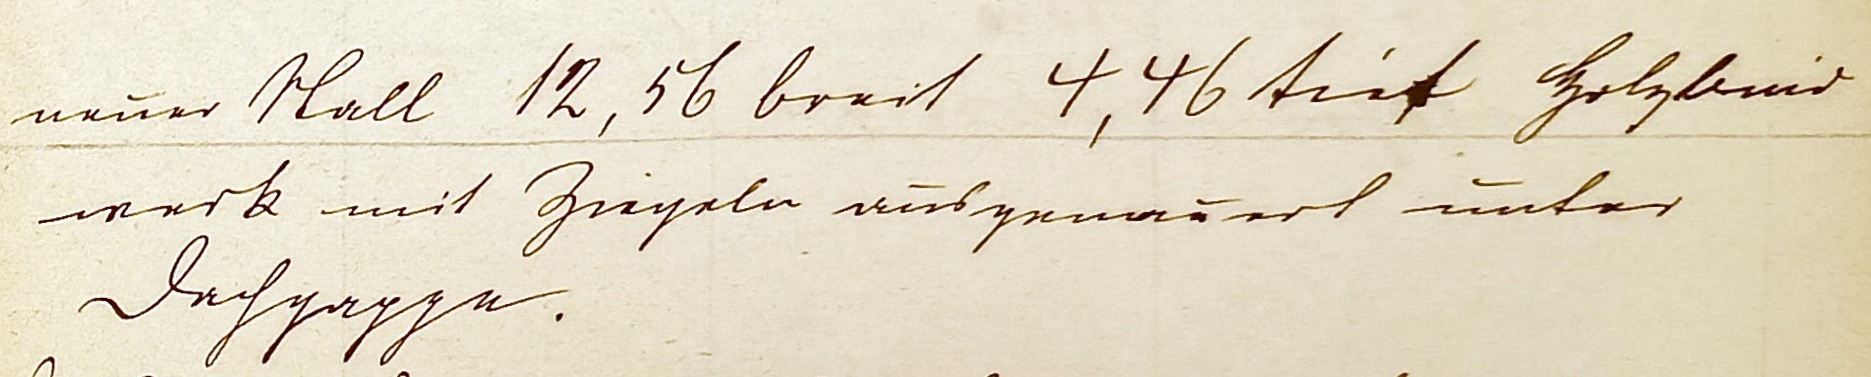 neuer Stall 12,56 breit 4,46 tief Holzbind
werk mit Ziegeln ausgemauert unter
Dachpappe.